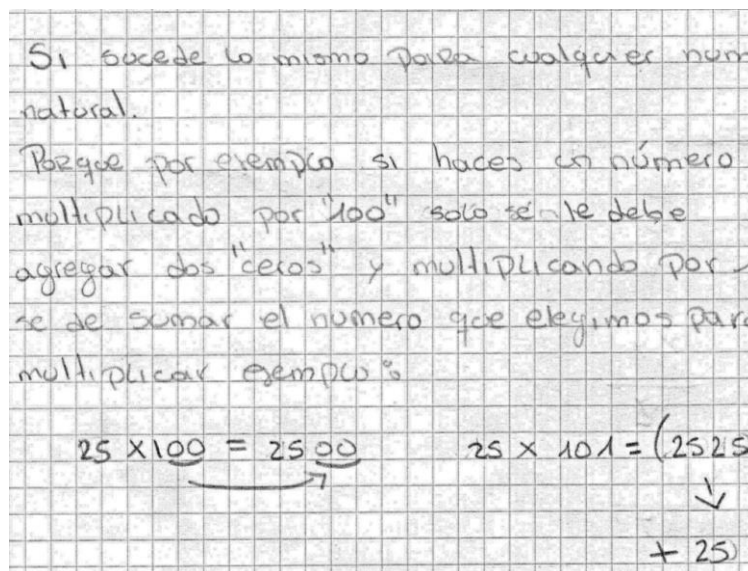 Si sucede lo mismo para cualquier num
natural.
Porque por ejemplo si haces un número
multiplicado por "100" solo se le debe
agregar dos "ceros" y multiplicando por
se de sumar el numero que elegimos para
multiplicar ejemplo:
25 x 100 = 2500 25 x 101 = (2525
+ 25)